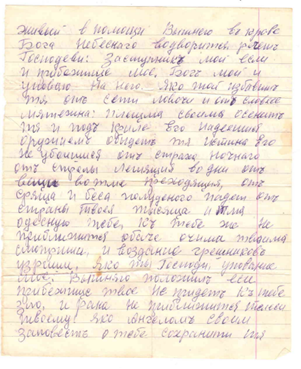 живый в помощи Вышняго в крово
Бога Небеснаго водворится, речет
Господеви: Заступник мой еси
и прибежище мое. Богъ мой и
уповаю на Него. Яко той избавит
тя отъ сети ловчи и отъ словесе
мятежна: плещма своима осенит
тя и подъ криле его надеешися
оружием обидет тя истина его
не убоишися от страха ночнаго
отъ стрелы летящия во дни отъ
вещи во тме преходящия, от
сряща и беса полуденого падет от
страны твоея тысяща и тма
одесную тебе, къ тебе же не
приближится обаче очима твоима
смотриши, и воздание грешников
узриши. Яко Ты Господи, упование
мое. Вышняго положил еси
прибежище твое не придетъ къ тебе
зло, и рана не приближится телеси
твоему: яко ангелом своим
заповесть о тебе сохранити тя